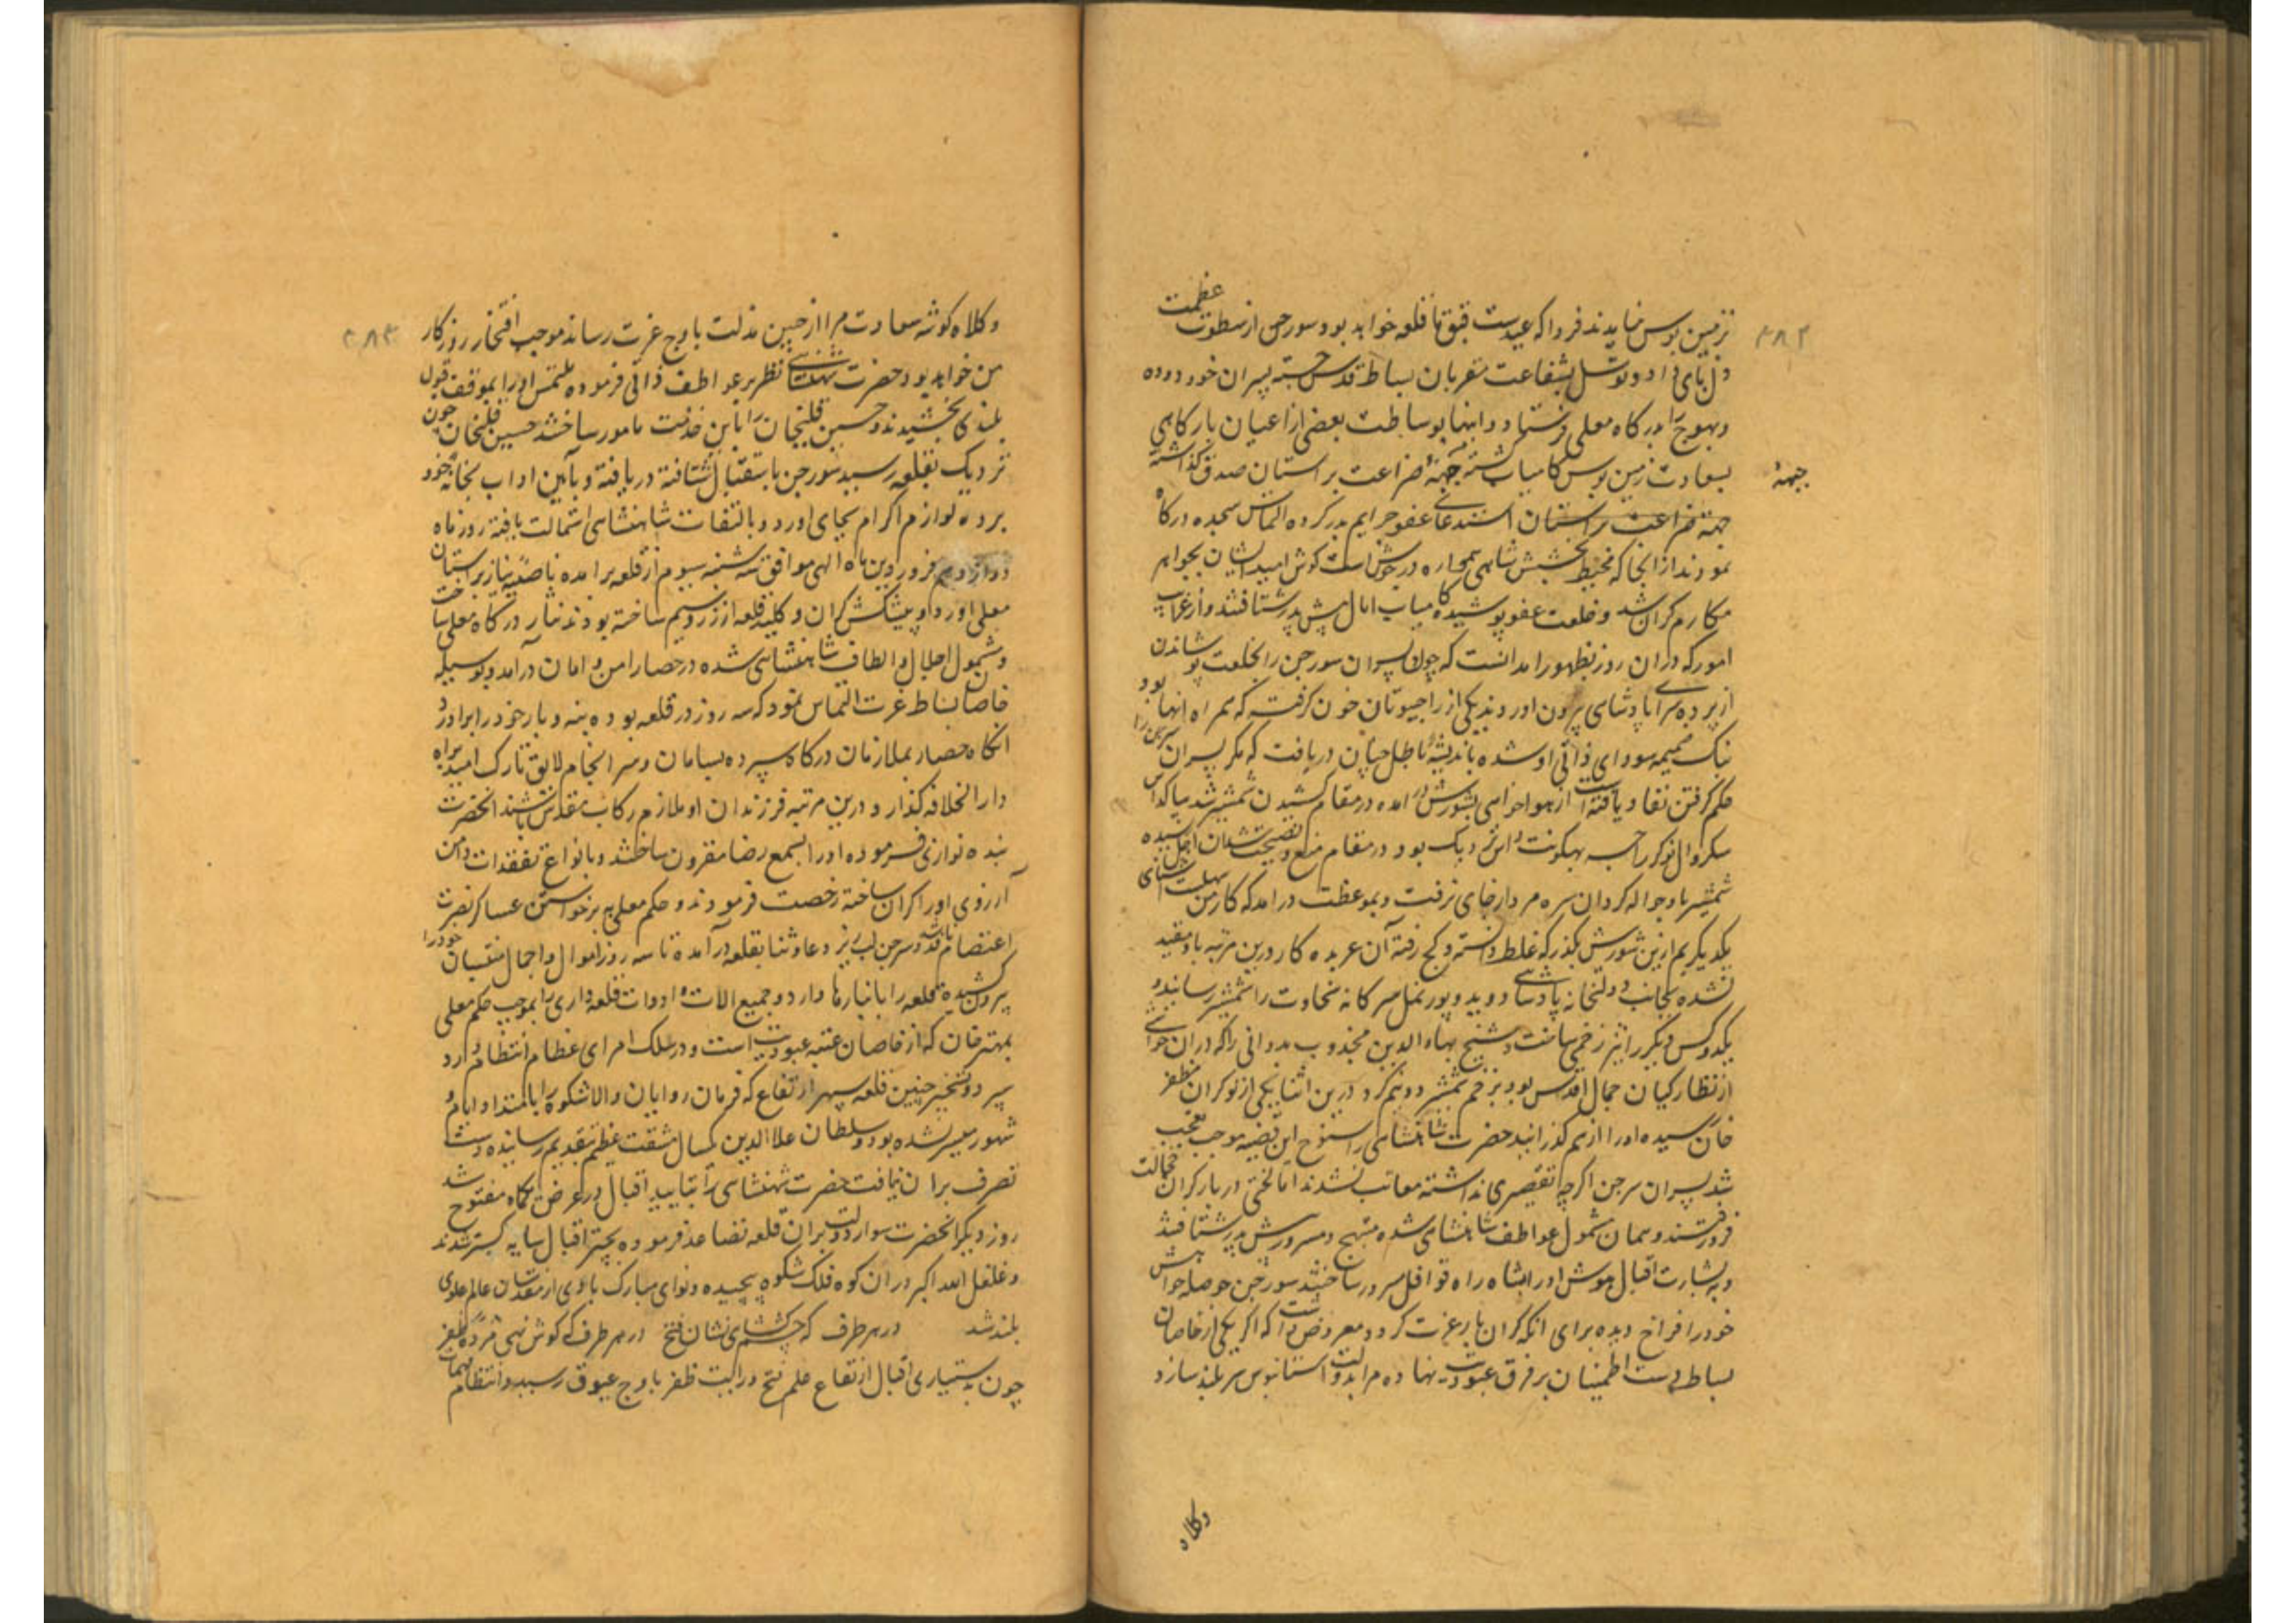 ۳۸۲
زمین بوس نمایند فردا که عید ست قبق ما قلعه خواهد بود سورجن از سطوت عظمت
دل بای داد و توسل بشفاعت مقربان بساط قدس جسته پسران خود دوده
وبهوج را بدرکاه معلی فرستاد و اینها بوساطت بعضی از اعیان بارکاهی
بسعادت زمین بوس کامیاب کشته جبههٔ ضراعت بر استان صدق کذاشته
جبههٔ
جبهه ضراعت بر استان استدعای عفو جرایم پدر کرده التماس سجده درکاه
نمودند از انجا که محیط بخشش شاهی همواره در جوش است کوش امید ایشان بجواهر
مکارم کران شد و خلعت عفو پوشیده کامیاب امال پیش پدر شتافتند و از غرایب
امور که دران روز بظهور امد انست که چون پسران سورجن را بخلعت پوشاندن
از پرده سرای پادشاهی بیرون اوردند یکی از راجپوتان خون کرفته که همراه انها بود
بنک ضمیمه سودای ذاتی او شده باندیشهٔ باطل چنان دریافت که مکر پسران سرجن را
حکم کرفتن نفاد یافته است از هواخواهی بشورش در امده در مقام کشیدن شمشیر شد بیاکداس
سکروال نوکر راجه بهکونت داس نزدیک بود در مقام منع و نصیحت شد ان اجل رسیده
شمشیر باو حواله کرد ان سره مرد از جای نرفت و بموعظت درامد که کار من بهلت شناسای
یکدیکریم ازین شورش بکذر که غلط دانسته و کج رفته آن عربده کار درین مرتبه باو مقید
نشده بجانب دولتخانه پادشاهی دوید و پورنمل سرکانه نخاوت را شمشیر رسانید و
یکدو کس دیکر را نیز زخمی ساخت و شیخ بهاءالدین مجذوب بدوانی را که دران حواشی
از نظارکیان جمال اقدس بود بزخم شمشیر دو نیم کرد درین اثنا یکی از نوکران مظفر
خان رسیده اورا از هم کذرانید حضرت شاهنشاهی را سنوح این قضیه موجب تعجب
شد پسران سرجن اکرچه تقصیری نداشته معاتب نشدند اما لختی در بار کران خجالت
فرو رفتند و همان شمول عواطف شاهنشاهی شده مبتهج و مسرور پیش پدر شتافتند
و به بشارت اقبال هوش اورا بشاه راه قوافل سرور ساختند سورجن حوصله خواهش
خود را فراخ دیده برای انکه کران بار عزت کردد معروض داشت که اکر یکی از خاصان
بساط دست اطمینان بر فرق عبودیت نهاده مرا بدولت استانبوس سربلند سازد
وکلاه
۳۸۳
وکلاه کوشه سعادت مرا از حبین مذلت باوج عزت رساند موجب افتخار روزکار
من خواهد بود حضرت شهنشاهی نظر بر عواطف ذاتی فرموده ملتمس اورا بموقف قبول
بلندی بخشیدند و حسین قلیخان را باین خدمت مامور ساختند حسین قلیخان چون
نزدیک بقلعه رسید سورجن باستقبال شتافته دریافته و بآیین اداب بخانه خود
برده لوازم اکرام بجای اورد و بالتفات شاهنشاهی استمالت یافته روز ماه
دوازدهم فروردین ماه الهی موافق سه شنبه سیوم از قلعه برامده ناصیه نیاز بر استان
معلی اورد و پیشکش کران و کلید قلعه از زر و سیم ساخته بودند نثار درکاه معلی ساخت
و مشمول اجلال و الطاف شاهنشاهی شده در حصار امن و امان درآمد و بوسیله
خاصان بساط عزت التماس نمود که سه روز در قلعه بوده بنه و بار خود را براورد
انکاه حصار بملازمان درکاه سپرده بسامان و سرانجام لایق تارک امید براه
دارالخلافه کذارد و درین مرتبه فرزندان او ملازم رکاب مقدس باشند انحضرت
بنده نوازی فرموده اورا بسمع رضا مقرون ساختند و بانواع تفقدات دامن
آرزوی اورا کران ساخته رخصت فرمودند و حکم معلی به برخواستن عساکر نصرت
اعتصام یافته و سرجن لبریز دعا و ثنا بقلعه درآمده تا سه روز اموال و احمال منتسبان خود را
بیرون کشیده قلعه را بانبارها دارد و جمیع الات و ادوات قلعه داری را بموجب حکم معلی
بمهترخان که از خاصان عتبه عبودیت است و در سلک امرای عظام انتظام دارد
سپرد و تسخیر چنین قلعه سپهر ارتفاع که فرمان روایان والا شکوه را بامتداد ایام و
شهور میسر نشده بود و سلطان علاالدین یکسال مشقت عظیم بتقدیم رسانیده دست
تصرف بران نیافت حضرت شهنشاهی را بتایید اقبال در عرض یکماه مفتوح شد
روز دیکر انحضرت سوار دولت بران قلعه تصاعد فرموده بچتر اقبال سایه کستر شدند
و غلغل الله اکبر دران کوه فلک شکوه پیچیده و نوای مبارک بادی از مقدسان عالم علوی
بلند شد در هر طرف که چشم کشای نشان فتح از هر طرف که کوش نهی مژدهٔ ظفر
چون بدستیاری اقبال ارتفاع علم فتح و رایت ظفر باوج عیوق رسید و انتظام مهمات